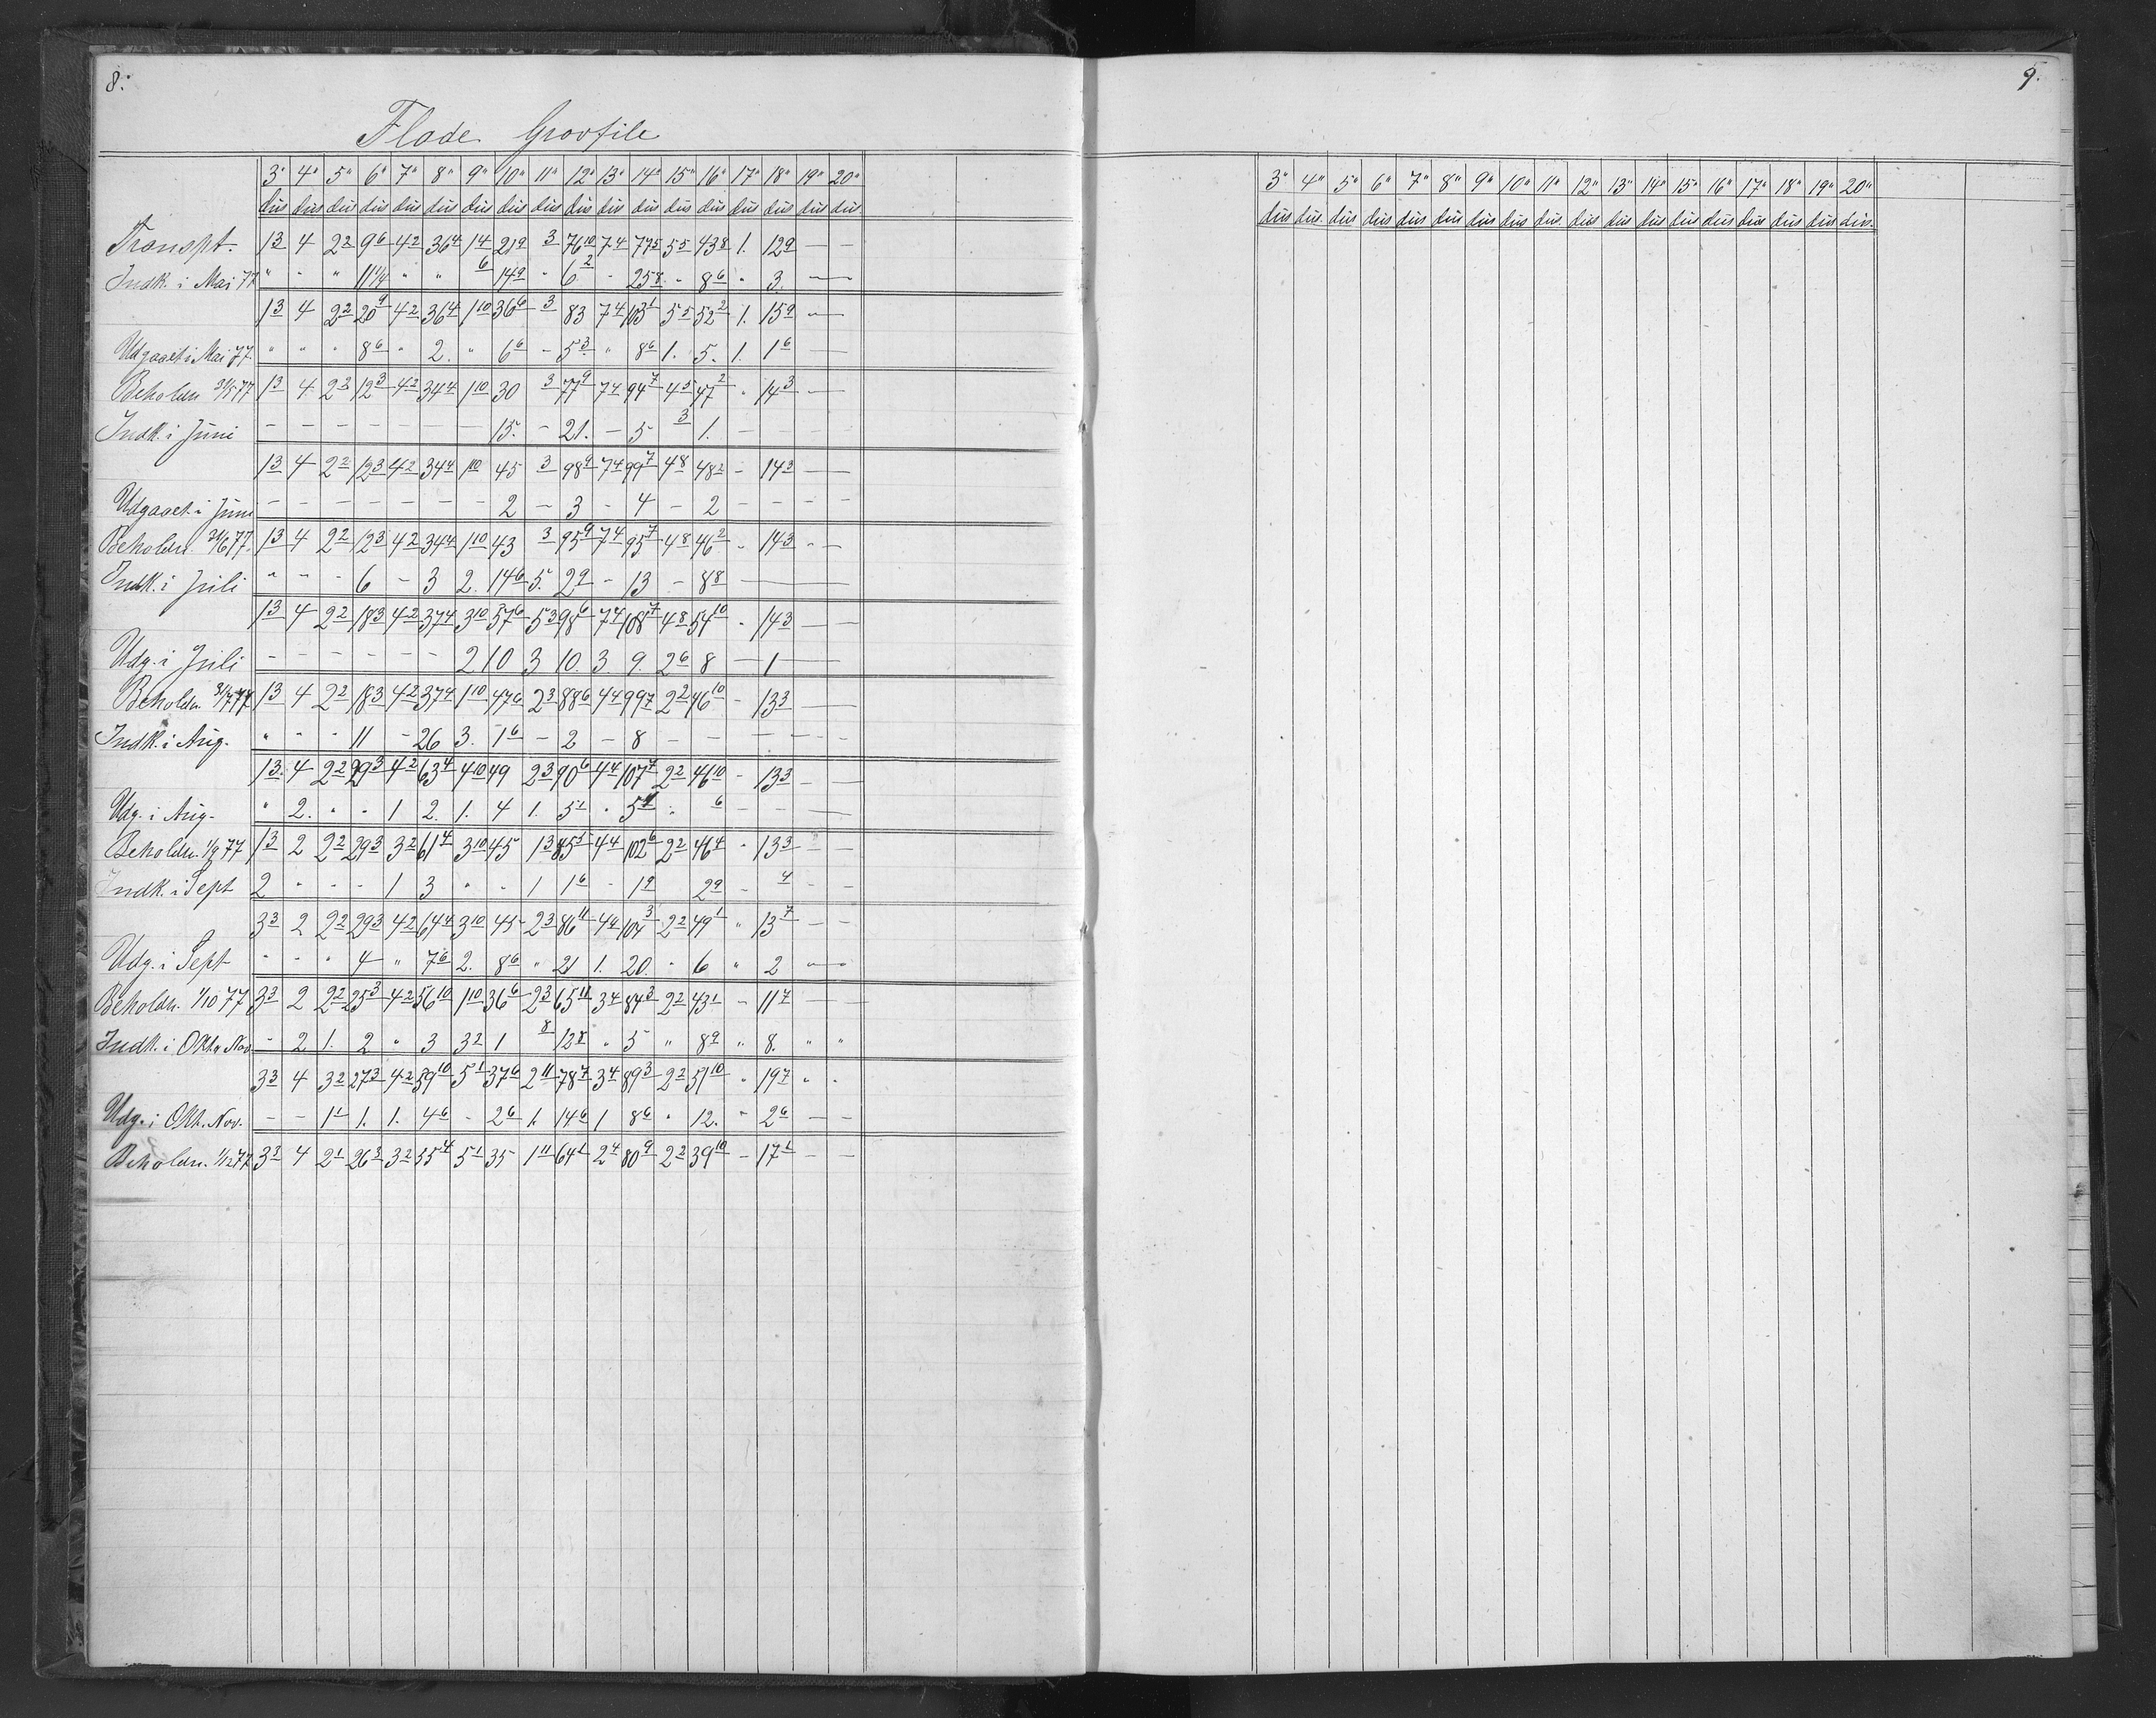 8.
Flade Grovfile
3" 4" 5" 6" 7" 8" 9" 10" 11" 12" 13" 14" 15" 16" 17" 18" 19" 20"
dus dus dus dus dus dus dus dus dus dus dus dus dus dus dus dus dus dus
Transpt. 1 3 4 2 2 9 6 4 2 36 4 1 4 21 9 3 76 10 7 4 77 5 5 5 43 8 1. 12 9 — —
Indk. i Mai 77 " " " 11 1/4 " " 6 14 9 " 6 2 - 25 8 " 8 6 " 3. —
1 3 4 2 2 20 9 4 2 36 4 1 10 36 6 3 83 7 4 103 1 5 5 52 2 1. 15 9 —
Udgaaet i Mai 77. " " " 8 6 " 2. " 6 6 - 5 3 " 8 6 1. 5. 1. 1 6 —
Beholdn 31/5 77 1 3 4 2 2 12 3 4 2 34 4 1 10 30 3 77 9 7 4 94 7 4 5 47 2 " 14 3 —
Indk. i Juni - - - - - - - 15. - 21. - 5 3 1. - - - -
1 3 4 2 2 12 3 4 2 34 4 1 10 45 3 98 9 7 4 99 7 4 8 48 2 - 14 3 —
Udgaaet i Juni - - - - - - - 2 - 3 - 4 - 2 - - - -
Beholdn. 31/6 77. 1 3 4 2 2 12 3 4 2 34 4 1 10 43 3 95 9 7 4 95 7 4 8 46 2 - 14 3 - -
Indk. i Juli " - - 6 - 3 2. 14 6 5. 2 9 - 13 - 8 8 —
1 3 4 2 2 18 3 4 2 37 4 3 10 57 6 5 3 98 6 7 4 108 7 4 8 54 10 - 14 3 — —
Udg. i Juli - - - - - - 2 10 3 10. 3. 9. 2 6 8 — 1 —
Beholdn. 31/7 77 1 3 4 2 2 18 3 4 2 37 4 1 10 47 6 2 3 88 6 4 4 99 7 2 2 46 10 - 13 3 —
Indk. i Aug. " - - 11 - 26 3. 1 6 - 2 - 8 - - - - - -
1 3. 4 2 2 29 3 4 2 63 4 4 10 49 2 3 90 6 4 4 107 7 2 2 46 10 - 13 3 - —
Udg. i Aug. " 2. " " 1 2. 1. 4 1. 5 1 " 5 1 " 6 - - —
Beholdn. 1/9 77 1 3 2 2 2 29 3 3 2 61 4 3 10 45 1 3 85 5 4 4 102 6 2 2 46 4 " 13 3 - -
Indk. i Sept 2 " " " 1 3 " " 1 1 6 - 1 9 2 9 - 4 - -
3 3 2 2 2 29 3 4 2 64 4 3 10 45 2 3 86 11 4 4 104 3 2 2 49 1 " 13 7 - -
Udg. i Sept " " " 4 " 7 6 2. 8 6 " 21 1. 20. " 6 " 2 —
Beholdn. 1/10 77 3 3 2 2 2 25 3 4 2 56 10 1 10 36 6 2 3 65 11 3 4 84 3 2 2 43 1 - 11 7 — —
Indk. i Okt. Nov. - 2 1. 2 " 3 3 2 1 8 12 8 " 5 " 8 9 " 8. " "
3 3 4 3 2 27 3 4 2 59 10 5 1 37 6 2 11 78 7 3 4 89 3 2 2 51 10 " 19 7 " "
Udg. i Okt. Nov. - - 1 1 1. 1. 4 6 - 2 6 1. 14 6 1 8 6 " 12. " 2 6 — —
Beholdn. 1/12 77 3 3 4 2 1 26 3 3 2 55 4 5 1 35 1 11 64 1 2 4 80 9 2 2 39 10 - 17 1 - -
9.
3" 4" 5" 6" 7" 8" 9" 10" 11" 12" 13" 14" 15" 16" 17" 18" 19" 20"
dus dus. dus dus dus dus dus dus dus. dus dus dus dus dus dus dus dus dus.